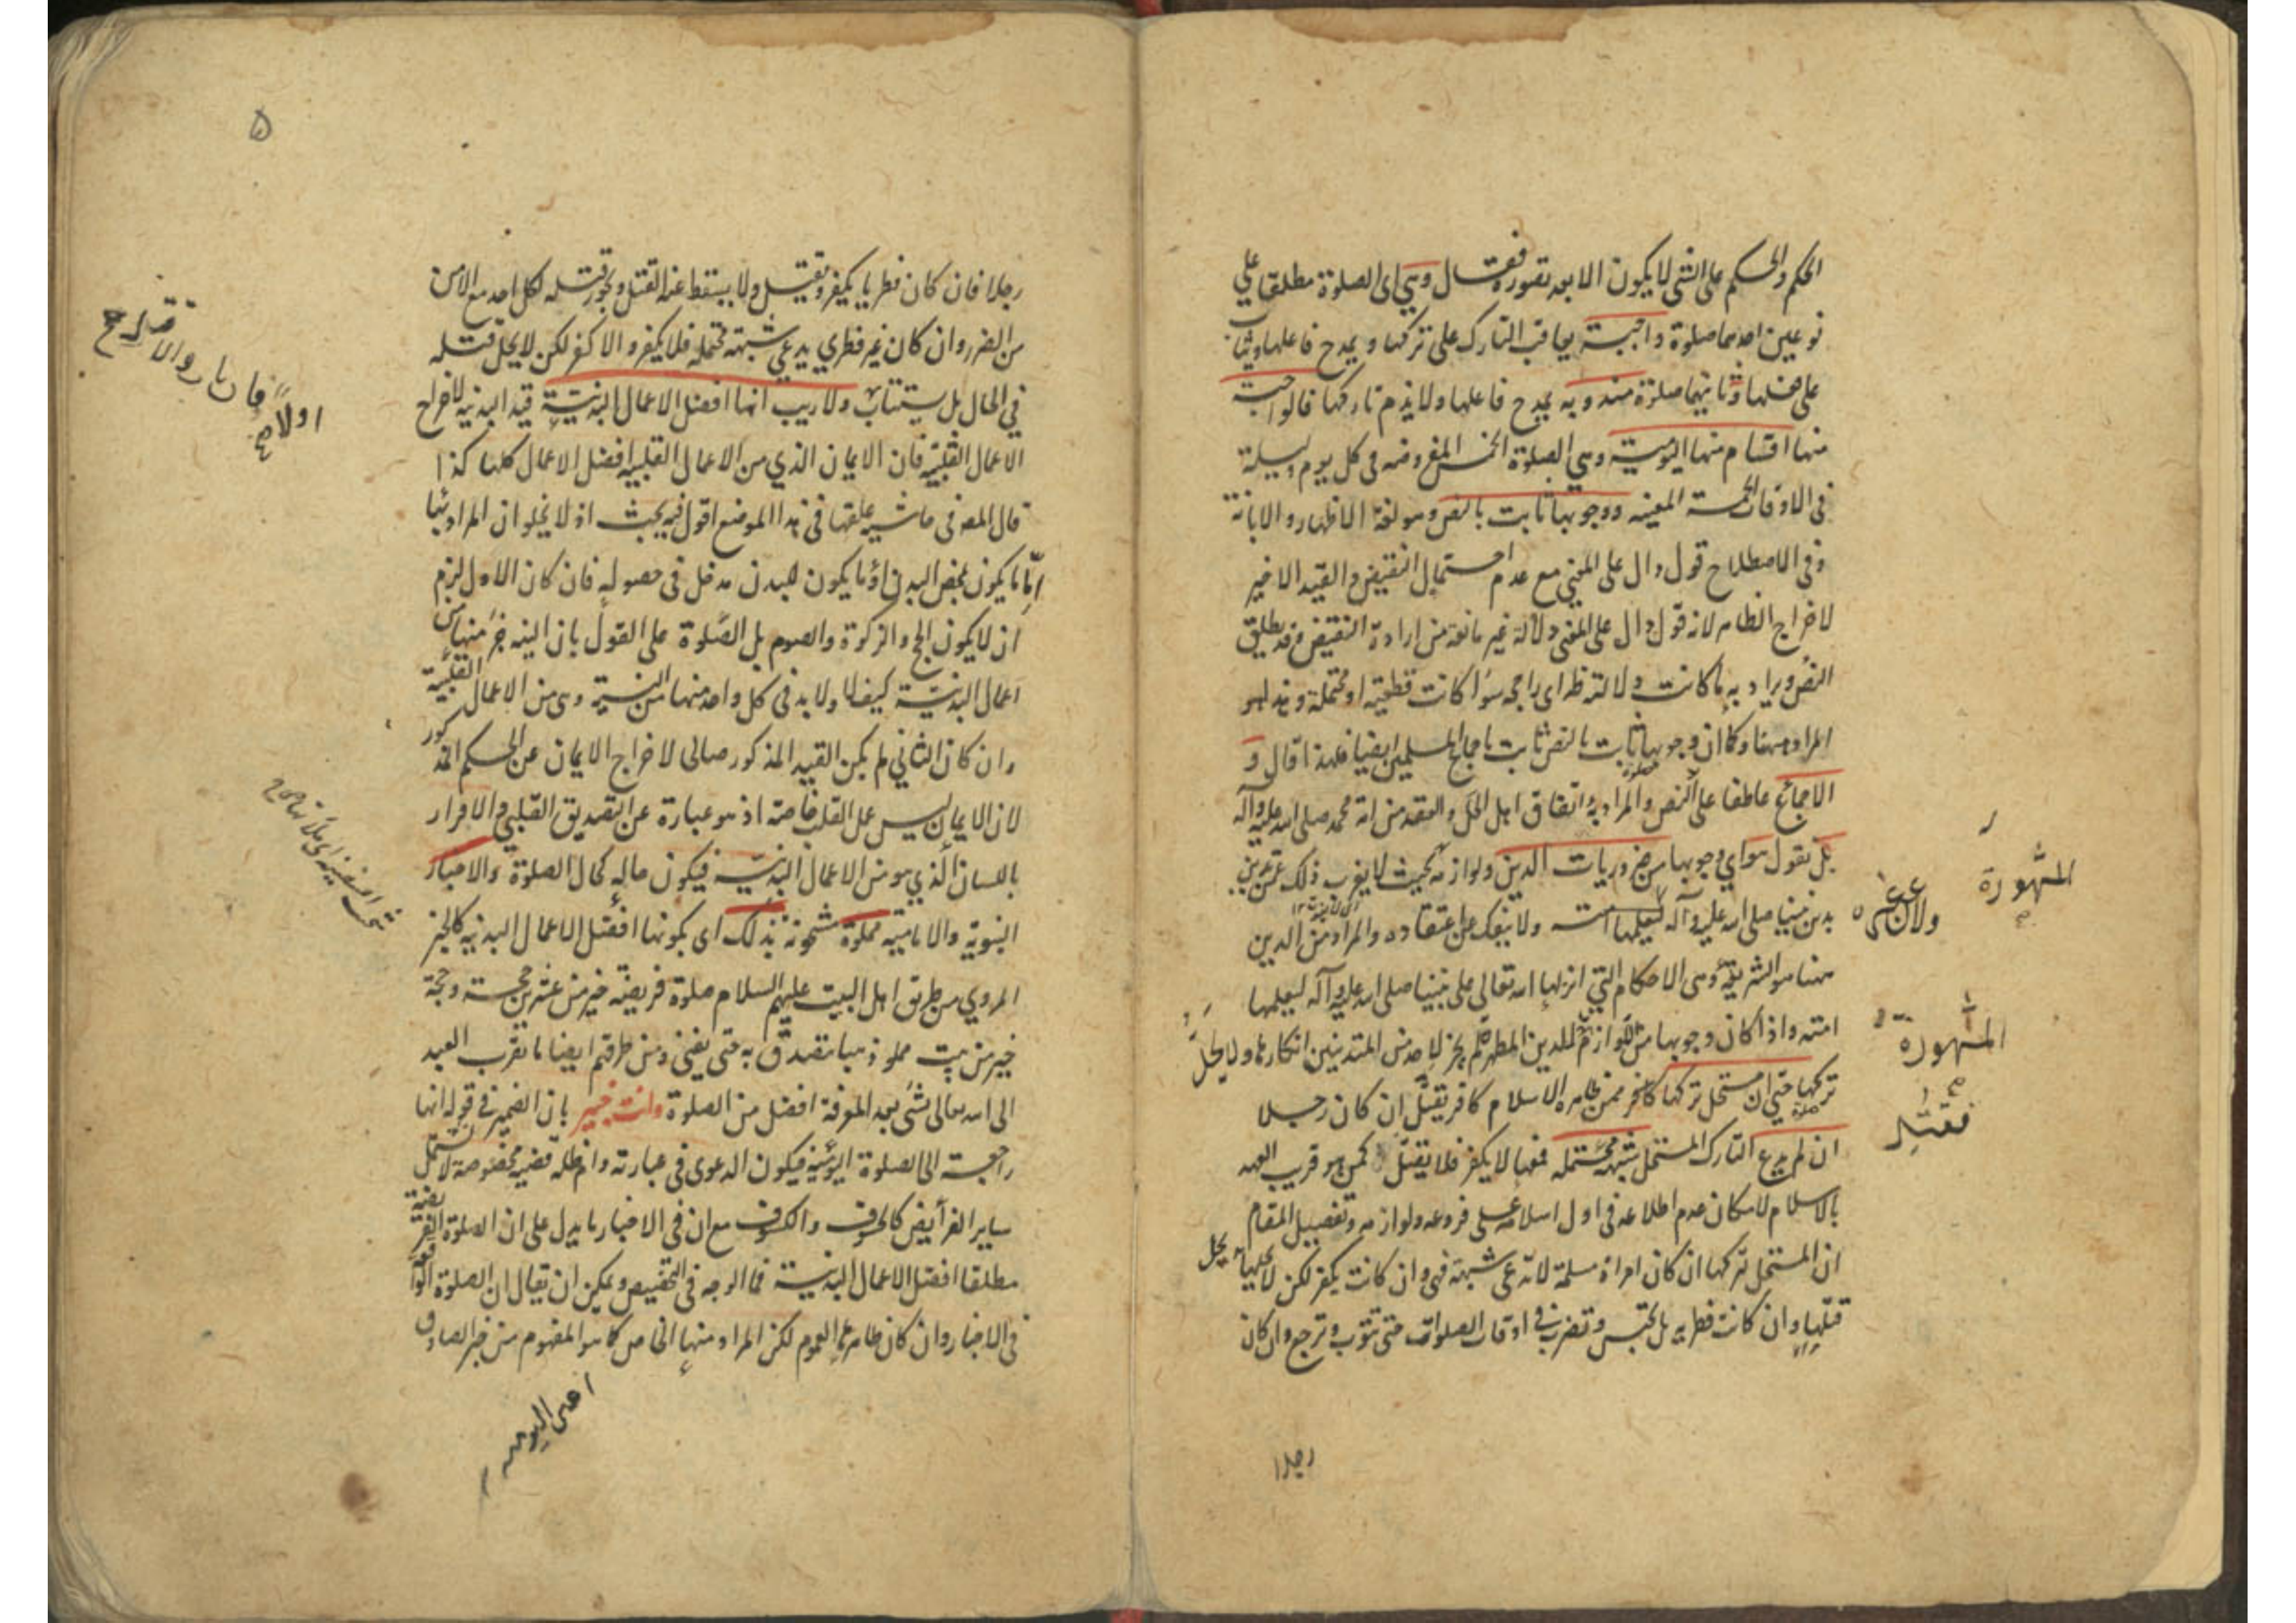 الحكم والحكم على الشي لا يكون الا بعد تصوره فقال وهي اى الصلوة مطلقا على
نوعين احدهما صلوة واجبة يعاقب التارك على تركها و يمدح فاعلها ويثاب
على فعلها وثانيهما صلوة مندوبه يمدح فاعلها ولا يذم تاركها فالواجبة
منها اقسام منها اليومية وهي الصلوة الخمس المفروضه فى كل يوم وليلة
فى الاوقات الخمسة المعينه ووجوبها ثابت بالنص وهو لغة الاظهار والابانة
وفى الاصطلاح قول دال على المعنى مع عدم احتمال النقيض والقيد الاخير
لاخراج الظاهر لانه قول دال على المعنى دلالة غير مانعة من ارادة النقيض وقد يطلق
النص ويراد به ما كانت دلالته ظ اى راجحه سواء كانت قطعية او محتملة وهذا هو
المراد ههنا وكما ان وجوبها ثابت بالنص ثابت باجماع المسلمين ايضا فلهذا قال و
الاجماع عاطفا على النص والمراد به اتفاق اهل الحل والعقد من امة محمد صلى الله عليه وآله
بل نقول هو اي وجوبها من ضروريات الدين ولوازمه بحيث لا يغرب ذلك عن متدين
بدين نبينا صلى الله عليه وآله ليعلمها امته ولا ينفك عن اعتقاده والمراد من الدين
ههنا هو الشريعة وهى الاحكام التي انزلها الله تعالى على نبينا صلى الله عليه وآله ليعلمها
امته واذا كان وجوبها من اللوازم للدين المطهر لم يجز لاحد من المتدينين انكارها ولا يحل
تركها حتى ان مستحل تركها كافر ممن ظاهره الاسلام كافر يقتل ان كان رجلا
ان لم يدع التارك المستحل شبهة محتمله فمعها لا يكفر فلا يقتل كمن هو قريب العهد
بالاسلام لامكان عدم اطلاعه فى اول اسلامه على فروعه ولوازمه وتفصيل المقام
ان المستحل تركها ان كان امراة مسلمة لا تدعى شبهة فهى وان كانت يكفر لكن لا يحل
قتلها وان كانت فطريه بل تحبس وتضرب فى اوقات الصلوات حتى تتوب وترجع وان كان
المشهورة
المشهورة
فقتل
رجلا
۵
رجلا فان كان فطريا يكفر ويقتل ولا يسقط عنه القتل ويجوز قتله لكل احد مع الامن
من الضرر وان كان غير فطري يدعي شبهة محتمله فلا يكفر والا كفر لكن لا يحل قتله
في الحال بل يستتاب ولا ريب انها افضل الاعمال البدنية قيد البدنيه لاخراج
الاعمال القلبيه فان الايمان الذي من الاعمال القلبيه افضل الاعمال كلها كذا
قال المصه فى حاشيه علقها فى هذا الموضع اقول فيه بحث اذ لا يخلو ان المراد بها
اما ما يكون بمحض البدن او ما يكون للبدن مدخل فى حصوله فان كان الاول لزم
ان لا يكون الحج والزكوة والصوم بل الصلوة على القول بان النيه جزء منها من
اعمال البدنية كيف لا ولا بد فى كل واحد منها من النية وهى من الاعمال القلبية
وان كان الثاني لم يكن القيد المذكور صالحا لاخراج الايمان عن الحكم المذكور
لان الايمان ليس عمل القلب خاصة اذ هو عبارة عن التصديق القلبي والاقرار
باللسان الذي هو من الاعمال البدنية فيكون حاله كحال الصلوة والاخبار
النبوية والاماميه مملوة مشحونة بذلك اى بكونها افضل الاعمال البدنيه كالخبر
المروي من طريق اهل البيت عليهم السلام صلوة فريضه خير من عشرين حجة وحجة
خير من بيت مملو ذهبا يتصدق به حتى يفنى ومن طرقهم ايضا ما تقرب العبد
الى الله تعالى بشى بعد المعرفة افضل من الصلوة وانت خبير بان الضمير فى قوله انها
راجعة الى الصلوة اليومية فيكون الدعوى فى عبارته دام ظله قضيه مخصوصة لا تشمل
ساير الفرايض كالخسوف والكسوف مع ان فى الاخبار ما يدل على ان الصلوة الفريضة
مطلقا افضل الاعمال البدنية فما الوجه فى التخصيص ويمكن ان يقال ان الصلوة الواقعة
فى الاخبار وان كان ظاهرها العموم لكن المراد منها الخاص كما هو المفهوم من خبر الصادق
اولا
اعنى اليوميه